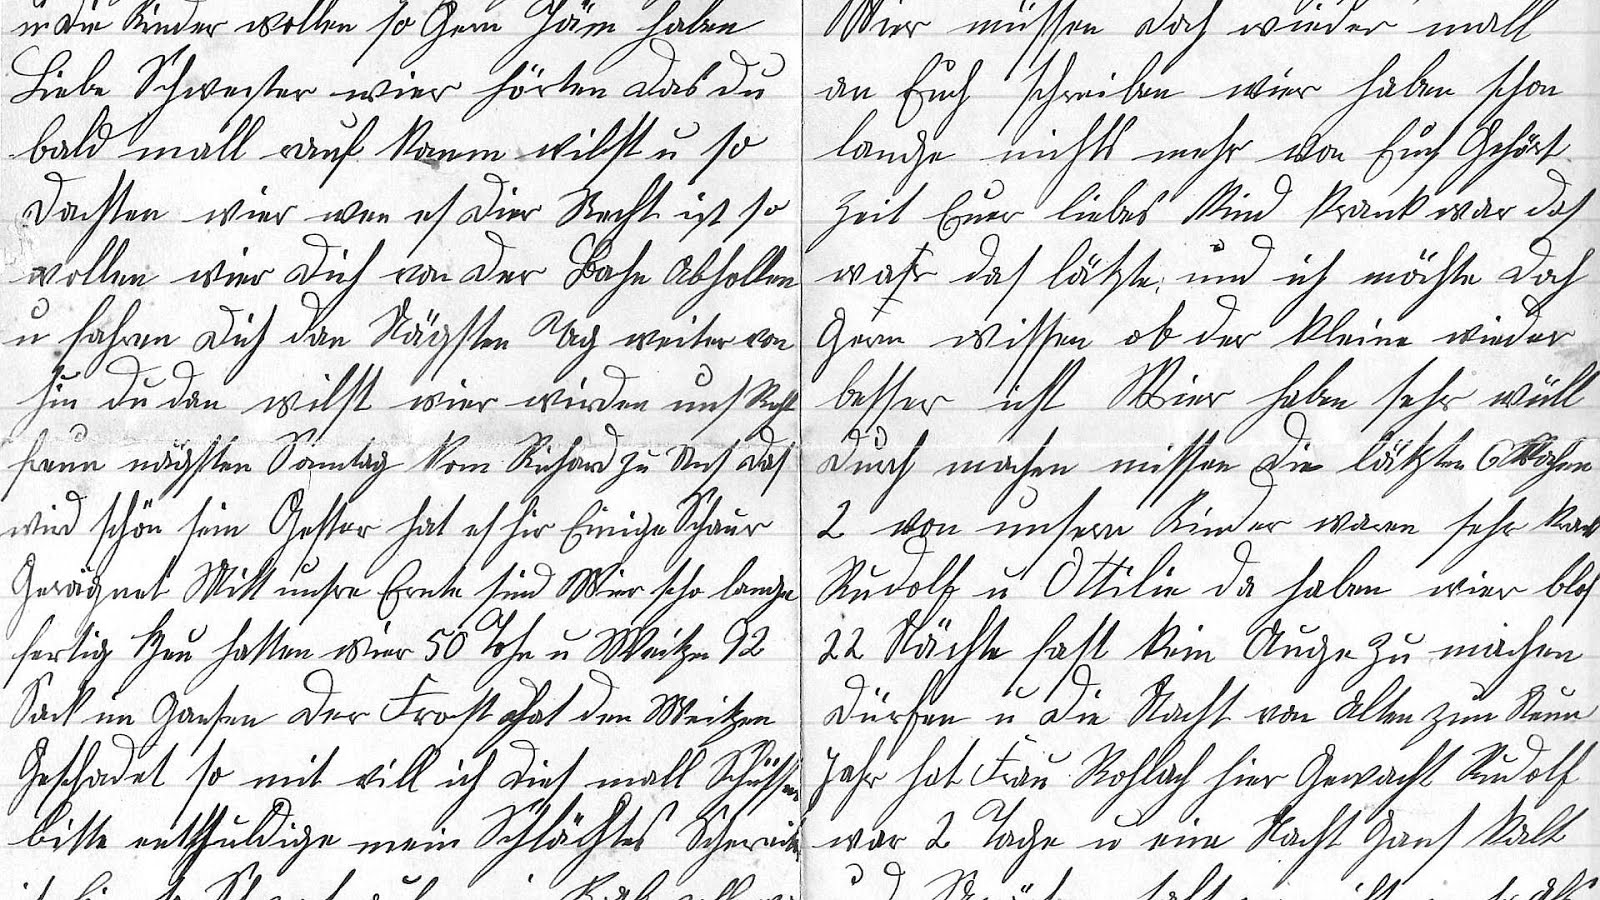 u die Kinder wollen so Gern Jäm haben
Liebe Schwester wier hörten das du
bald mall rauf kamm wilst u so
Dachten wier wen es Dier Recht ist so
wollen wier Dich von der Bahn Abhollen
u fahren Dich dan Nägsten Tag weiter von
hin du dan wilst wier wirden uns Recht
freun nägsten Sonntag kom Richard zu Uns das
wird schön sein Gester hat es hir Einige Schaur
Gerägnet Mitt unsre Ernte sind Wier scho lange
fertig Heu hatten Wier 50 Tohn u Weitzen 92
Sack im Gansen Der Frost hat den Weitzen
Geschadet so mit will ich Dies mall Schlüssen
bitte entschuldige mein Schlächtes Schreiben
Wier müssen doch wieder mall
an Euch schreiben wier haben schon
lange nichts mehr von Euch Gehört
zeit Euer liebes Kind krank war das
wahr das lätzte, und ich möchte doch
Gern wissen ob der kleine wieder
besser ist Wier haben sehr vüll
Durch machen missen Die lätzten 6 Wochen
2 von unsern Kinder waren sehr krank
Rudolf u Ottilie da haben wier blos
22 Nächte fast kein Auge zu machen
Dürfen u Die Nacht von Alten zum Neun
Jahr hat Frau Rohlach hier Gewacht Rudolf
war 2 Tage u eine Nacht Gans kalt